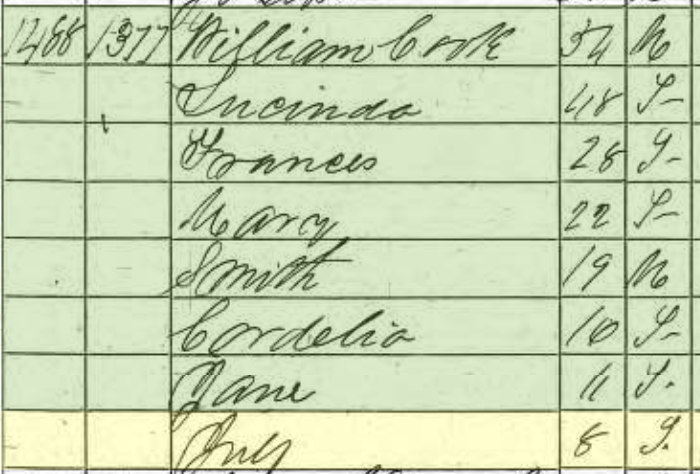 1488 1377 William Cook 54 M
Lucinda 48 F
Frances 28 F
Mary 22 F
Smith 19 M
Cordelia 16 F
Jane 11 F
July 8 F